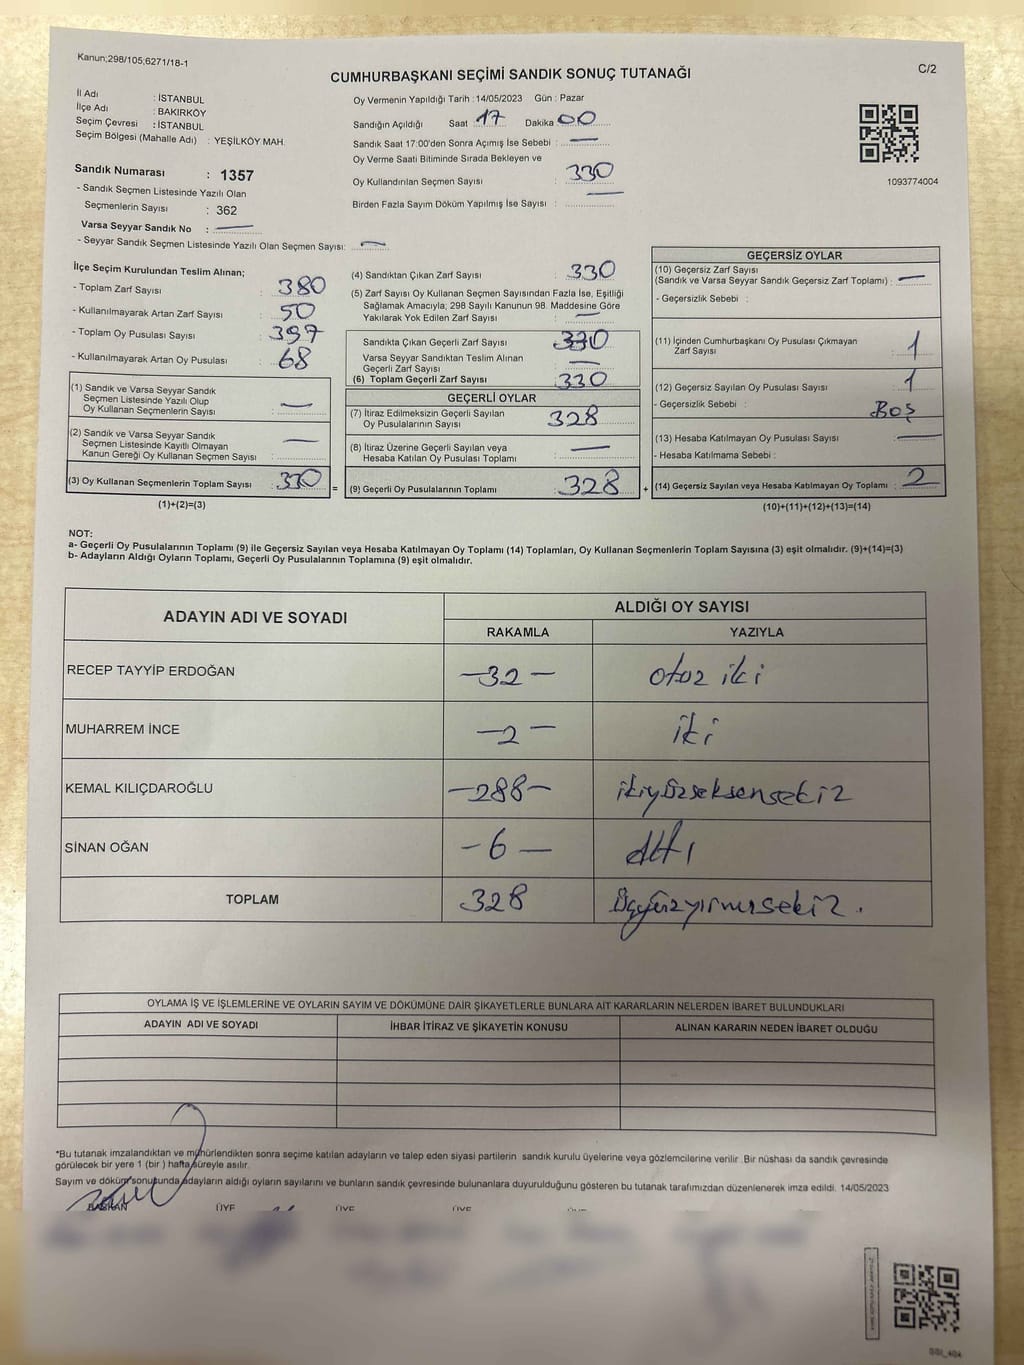 Kanun;298/105;6271/18-1
CUMHURBAŞKANI SEÇİMİ SANDIK SONUÇ TUTANAĞI
C/2
İl Adı : İSTANBUL
İlçe Adı : BAKIRKÖY
Seçim Çevresi : İSTANBUL
Seçim Bölgesi (Mahalle Adı) : YEŞİLKÖY MAH.
Oy Vermenin Yapıldığı Tarih :14/05/2023 Gün : Pazar
Sandığın Açıldığı Saat 17 Dakika 00
Sandık Saat 17:00'den Sonra Açımış İse Sebebi : —
Oy Verme Saati Bitiminde Sırada Bekleyen ve
Oy Kullandırılan Seçmen Sayısı : 330
Birden Fazla Sayım Döküm Yapılmış İse Sayısı : —
1093774004
Sandık Numarası : 1357
- Sandık Seçmen Listesinde Yazılı Olan
Seçmenlerin Sayısı : 362
Varsa Seyyar Sandık No : —
- Seyyar Sandık Seçmen Listesinde Yazılı Olan Seçmen Sayısı: —
İlçe Seçim Kurulundan Teslim Alınan;
- Toplam Zarf Sayısı : 380
- Kullanılmayarak Artan Zarf Sayısı : 50
- Toplam Oy Pusulası Sayısı : 397
- Kullanılmayarak Artan Oy Pusulası : 68
(1) Sandık ve Varsa Seyyar Sandık
Seçmen Listesinde Yazılı Olup
Oy Kullanan Seçmenlerin Sayısı : —
(2) Sandık ve Varsa Seyyar Sandık
Seçmen Listesinde Kayıtlı Olmayan
Kanun Gereği Oy Kullanan Seçmen Sayısı : —
(3) Oy Kullanan Seçmenlerin Toplam Sayısı : 330 =
(1)+(2)=(3)
(4) Sandıktan Çıkan Zarf Sayısı : 330
(5) Zarf Sayısı Oy Kullanan Seçmen Sayısından Fazla İse, Eşitliği
Sağlamak Amacıyla; 298 Sayılı Kanunun 98. Maddesine Göre
Yakılarak Yok Edilen Zarf Sayısı : —
Sandıkta Çıkan Geçerli Zarf Sayısı : 330
Varsa Seyyar Sandıktan Teslim Alınan
Geçerli Zarf Sayısı : —
(6) Toplam Geçerli Zarf Sayısı : 330
GEÇERLİ OYLAR
(7) İtiraz Edilmeksizin Geçerli Sayılan
Oy Pusulalarının Sayısı : 328
(8) İtiraz Üzerine Geçerli Sayılan veya
Hesaba Katılan Oy Pusulası Toplamı : —
(9) Geçerli Oy Pusulalarının Toplamı : 328 +
GEÇERSİZ OYLAR
(10) Geçersiz Zarf Sayısı
(Sandık ve Varsa Seyyar Sandık Geçersiz Zarf Toplamı) : —
- Geçersizlik Sebebi :
(11) İçinden Cumhurbaşkanı Oy Pusulası Çıkmayan
Zarf Sayısı : 1
(12) Geçersiz Sayılan Oy Pusulası Sayısı : 1
- Geçersizlik Sebebi : BOŞ
(13) Hesaba Katılmayan Oy Pusulası Sayısı : —
- Hesaba Katılmama Sebebi :
(14) Geçersiz Sayılan veya Hesaba Katılmayan Oy Toplamı : 2
(10)+(11)+(12)+(13)=(14)
NOT:
a- Geçerli Oy Pusulalarının Toplamı (9) ile Geçersiz Sayılan veya Hesaba Katılmayan Oy Toplamı (14) Toplamları, Oy Kullanan Seçmenlerin Toplam Sayısına (3) eşit olmalıdır. (9)+(14)=(3)
b- Adayların Aldığı Oyların Toplamı, Geçerli Oy Pusulalarının Toplamına (9) eşit olmalıdır.
ADAYIN ADI VE SOYADI
ALDIĞI OY SAYISI
RAKAMLA YAZIYLA
RECEP TAYYİP ERDOĞAN —32— otuz iki
MUHARREM İNCE —2— iki
KEMAL KILIÇDAROĞLU —288— ikiyüzseksensekiz
SİNAN OĞAN —6— Altı
TOPLAM 328 Üçyüzyirmisekiz.
OYLAMA İŞ VE İŞLEMLERİNE VE OYLARIN SAYIM VE DÖKÜMÜNE DAİR ŞİKAYETLERLE BUNLARA AİT KARARLARIN NELERDEN İBARET BULUNDUKLARI
ADAYIN ADI VE SOYADI İHBAR İTİRAZ VE ŞİKAYETİN KONUSU ALINAN KARARIN NEDEN İBARET OLDUĞU
*Bu tutanak imzalandıktan ve mühürlendikten sonra seçime katılan adayların ve talep eden siyasi partilerin sandık kurulu üyelerine veya gözlemcilerine verilir .Bir nüshası da sandık çevresinde
görülecek bir yere 1 (bir ) hafta süreyle asılır.
Sayım ve döküm sonucunda adayların aldığı oyların sayılarını ve bunların sandık çevresinde bulunanlara duyurulduğunu gösteren bu tutanak tarafımızdan düzenlenerek imza edildi. 14/05/2023
BAŞKAN ÜYE ÜYE ÜYE